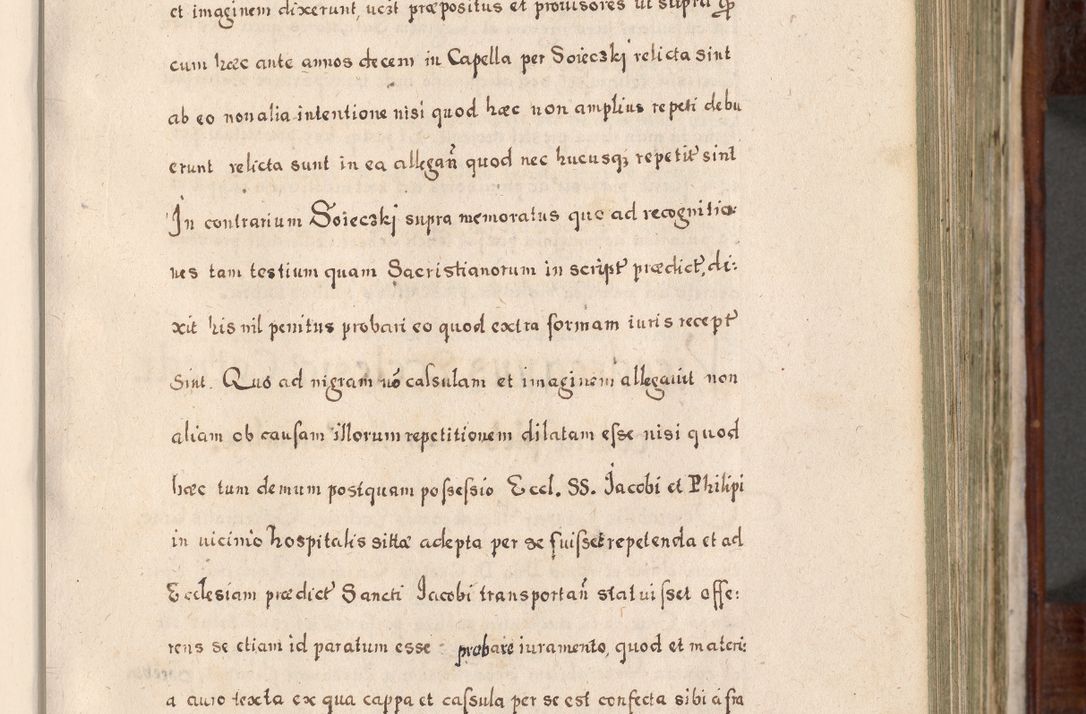 et imaginem dixerunt, uczt præpositus et prouisores ut supra qp
cum hæc ante annos decem in Capella per Soieczkj relicta sint
ab eo non alia intentione nisi quod hæc non amplius repeti debu
erunt relicta sunt in ea allegan̄ quod nec hucusqȝ repetit̉ sint
In contrarium Soieczkj supra memoratus que ad recognitio:
nes tam testium quam Sacristianorum in script̉ prædict̉, di:
xit his nil penitus probari eo quod extra formam iuris recept̉
sint. Quo ad nigram uō casulam et imaginem allegauit non
aliam ob causam illorum repetitionem dilatam esse nisi quod
hæc tum demum postquam possessio Eccl. SS. Jacobi et Philipi
in uicinio hospitalis sittæ adepta per se fuisset repetenda et ad
Ecclesiam prædict̉ Sancti Jacobi transportan̄ statuisset offe:
rens se etiam id paratum esse probare iuramento, quod et materi:
a auro texta ex qua cappa et casula per se est confecta sibi a fra